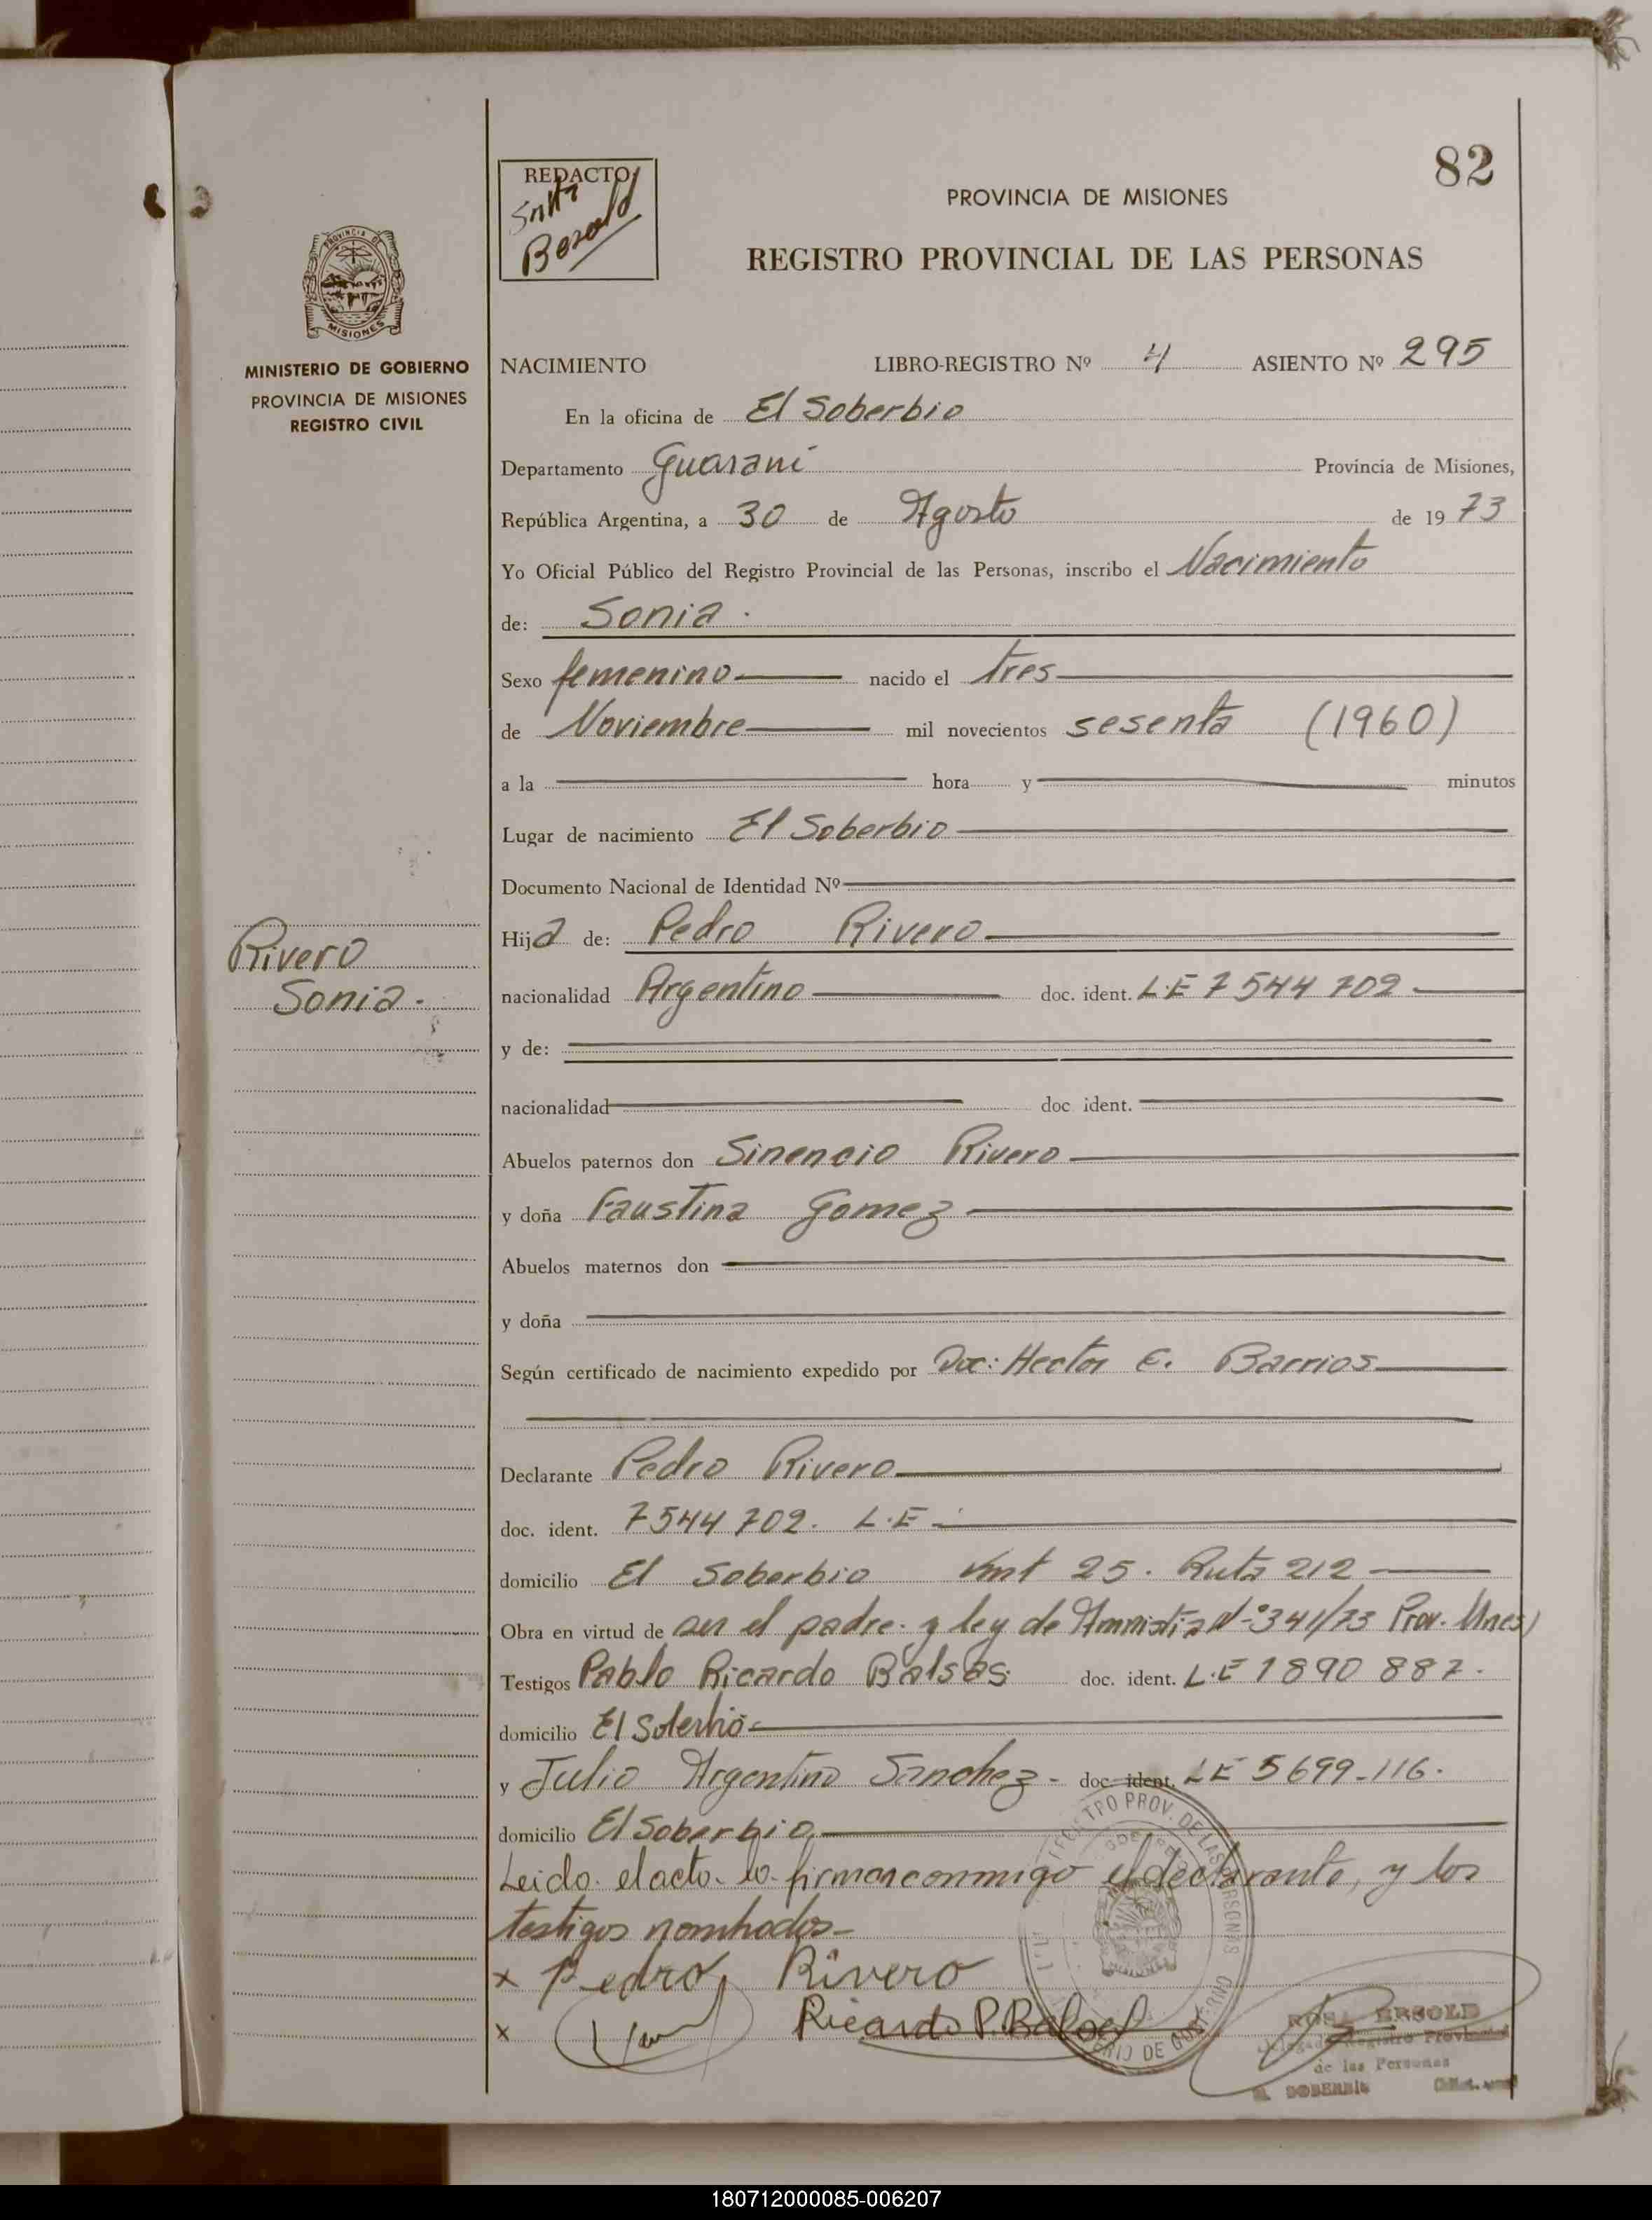 82
REDACTO
Besold
PROVINCIA DE MISIONES
REGISTRO PROVINCIAL DE LAS PERSONAS
PROVINCIA DE
MISIONES
MINISTERIO DE GOBIERNO
PROVINCIA DE MISIONES
REGISTRO CIVIL
NACIMIENTO LIBRO-REGISTRO Nº 4 ASIENTO Nº 295
En la oficina de El Soberbio
Departamento Guarani Provincia de Misiones,
República Argentina, a 30 de Agosto de 19 73
Yo Oficial Público del Registro Provincial de las Personas, inscribo el Nacimiento
de: Sonia.
Sexo femenino nacido el tres
de Noviembre mil novecientos sesenta (1960)
a la hora y minutos
Lugar de nacimiento El Soberbio
Documento Nacional de Identidad Nº
Hija de: Pedro Rivero
Rivero
Sonia.
nacionalidad Argentino doc. ident. L.E 7544 702
y de:
nacionalidad doc ident.
Abuelos paternos don Sinencio Rivero
y doña Faustina Gomez
Abuelos maternos don
y doña
Según certificado de nacimiento expedido por Doc: Hector E. Barrios
Declarante Pedro Rivero
doc. ident. 7544 702. L.E
domicilio El Soberbio Kmt 25. Ruta 212
Obra en virtud de ser el padre. y ley de Amnistia Nº 341/73 Prov. Mnes)
Testigos Pablo Ricardo Balsas doc. ident. L.E 1890 887.
domicilio El Soberbio
y Julio Argentino Sanchez - doc. ident. LE 5699-116.
domicilio El Soberbio
Leido. el acto. lo. firman conmigo el declarante, y los
testigos nombados-
x Pedro Rivero
x Ricardo P. Balsa
ROSA BESOLD
Registro Provincial
de las Personas
EL SOBERBIO
180712000085-006207